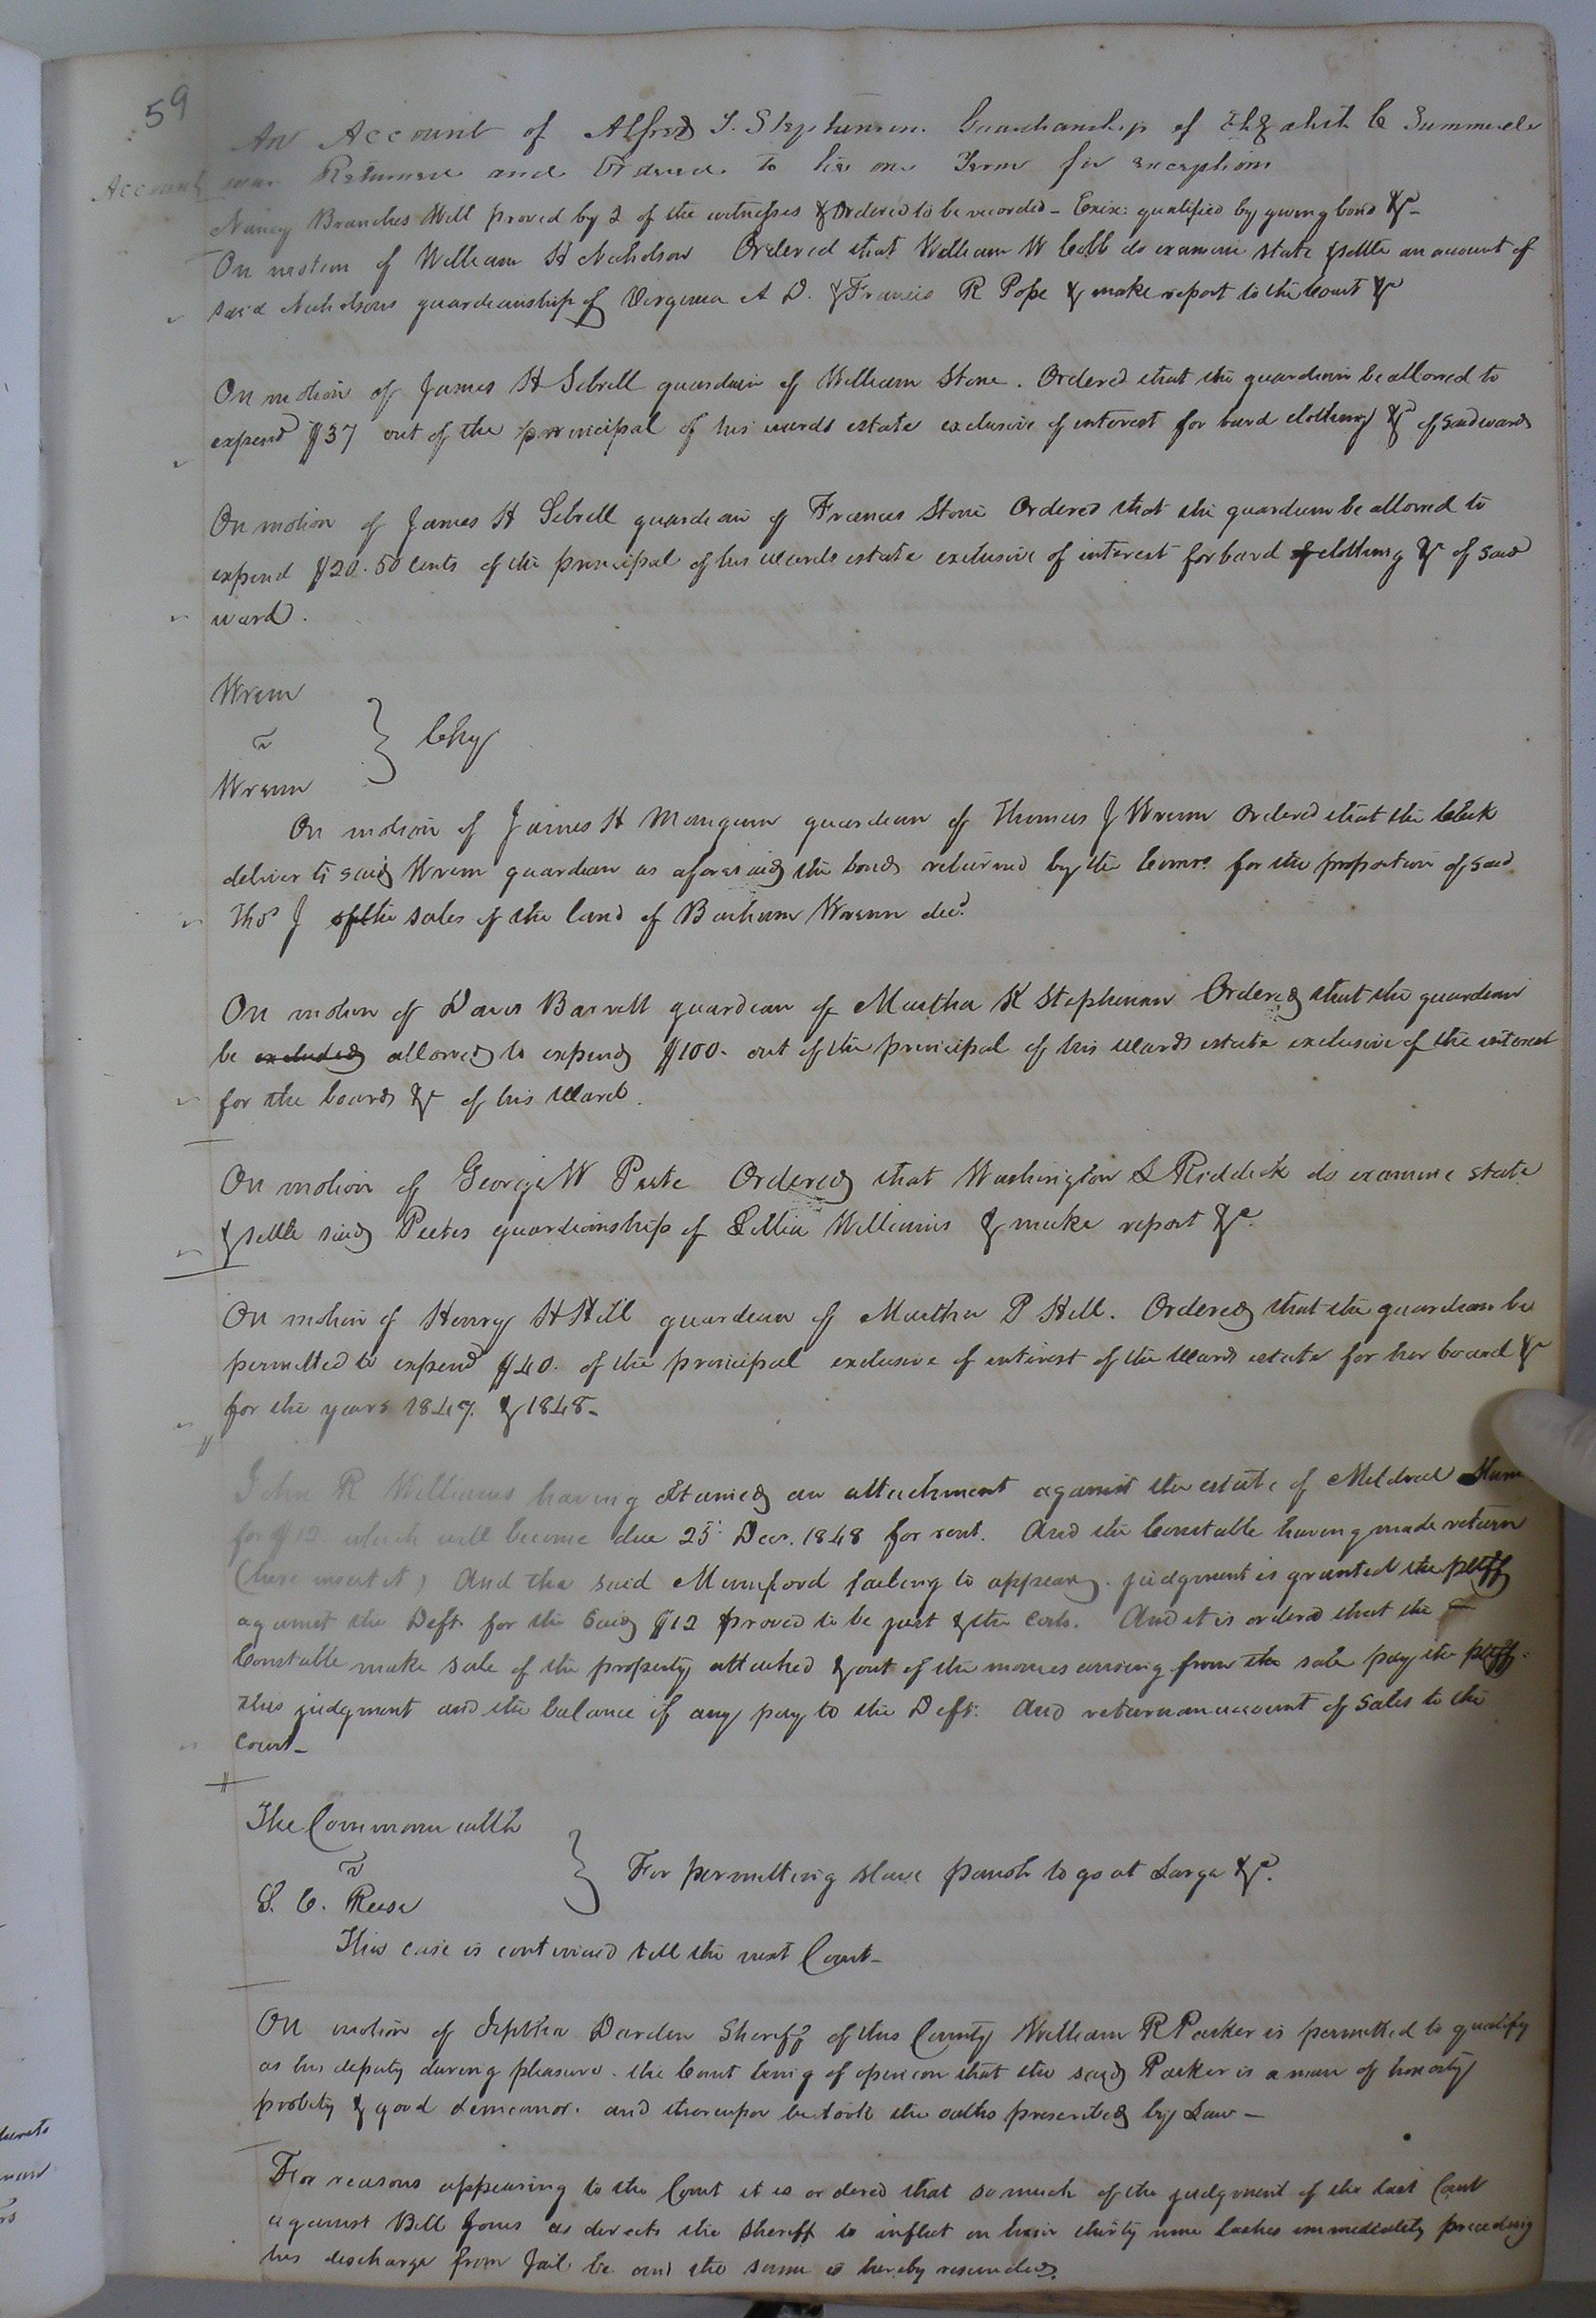 59
An Account of Alfred J. Stephenson Guardianship of Elizabeth C Summerele
Account was Returned and Ordered to lie one Term for exceptions
Nancy Branches Will proved by 2 of the witnesses & Ordered to be recorded – Exix: qualified by giving bond &c –
On motion of William H Nicholson Ordered that William W Cobb do examine state & settle an account of
said Nicholsons guardianship of Virginia A D. & Francis R Pope & make report to the Court &c
On motion of James H Sebrell guardian of William Stone. Ordered that the guardian be allowed to
expend $37 out of the principal of his wards estate exclusive of interest for bard clothing &c of said wards
On motion of James H Sebrell guardian of Frances Stone Ordered that the guardian be allowed to
expend $20.50 cents of the principal of his wards estate exclusive of interest for bard clothing &c of said
ward.
Wrenn
v
} Chy
Wrenn
On motion of James H Mangum guardian of Thomas J Wrenn Ordered that the Clerk
deliver to said Wrenn guardian as aforesaid the bonds returned by the Comrs. for the proportion of said
Thos J of the sales of the land of Barham Wrenn decd.
On motion of Davis Barrett guardian of Martha K Stephenson Ordered that the guardian
be excluded allowed to expend $100. out of the principal of his wards estate exclusive of the interest
for the board &c of his Ward.
On motion of George W Peete Ordered that Washington L Riddick do examine state
& settle said Peetes guardianship of Williams & make report &c.
On motion of Henry H Hill guardian of Martha P Hill. Ordered that the guardian be
permitted to expend $40. of the principal exclusive of interest of the Wards estate for her board &c
for the years 1847. & 1848 –
John R Williams having obtained an attachment against the estate of Mildred Mum
for $12 which will become due 25th Decr. 1848 for rent. And the Constable having made return
(here insert it) And the said Mumford failing to appear. judgment is granted the pltff
against the Deft. for the said $12 proved to be just & the costs. And it is ordered that the
Constable make sale of the property attached & out of the monies arising from the sale pay the pltff.
this judgment and the balance if any pay to the Deft. And return an account of sales to the
Court –
The Commonwealth
v
} For permitting slave to go at Large &c.
S. C. Reese
This case is continued till the next Court –
On motion of Jeptha Darden Sheriff of this County William R Parker is permitted to qualify
as his deputy during pleasure. the Court being of opinion that the said Parker is a man of honesty
probity & good demeanor. and thereupon he took the oaths prescribed by Law –
For reasons appearing to the Court it is ordered that so much of the judgment of the last Court
against Bill Jones as directs the Sheriff to inflict on him thirty nine lashes immediately preceding
his discharge from Jail be and the same is hereby rescinded.